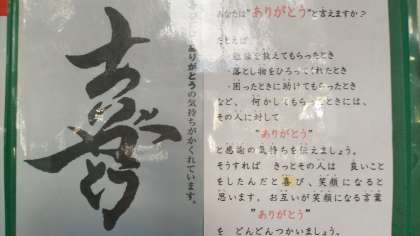 喜
ありがとうの気持ちがかくれています。
あなたは"ありがとう"と言えますか?
たとえば
・勉強を教えてもらったとき
・落とし物をひろってくれたとき
・困ったときに助けてもらったとき
など、何かしてもらったときには、
その人に対して
"ありがとう"
と感謝の気持ちを伝えましょう。
そうすれば きっとその人は 良いこと
をしたんだと喜び、笑顔になると
思います。お互いが笑顔になる言葉
"ありがとう"
を どんどんつかいましょう。